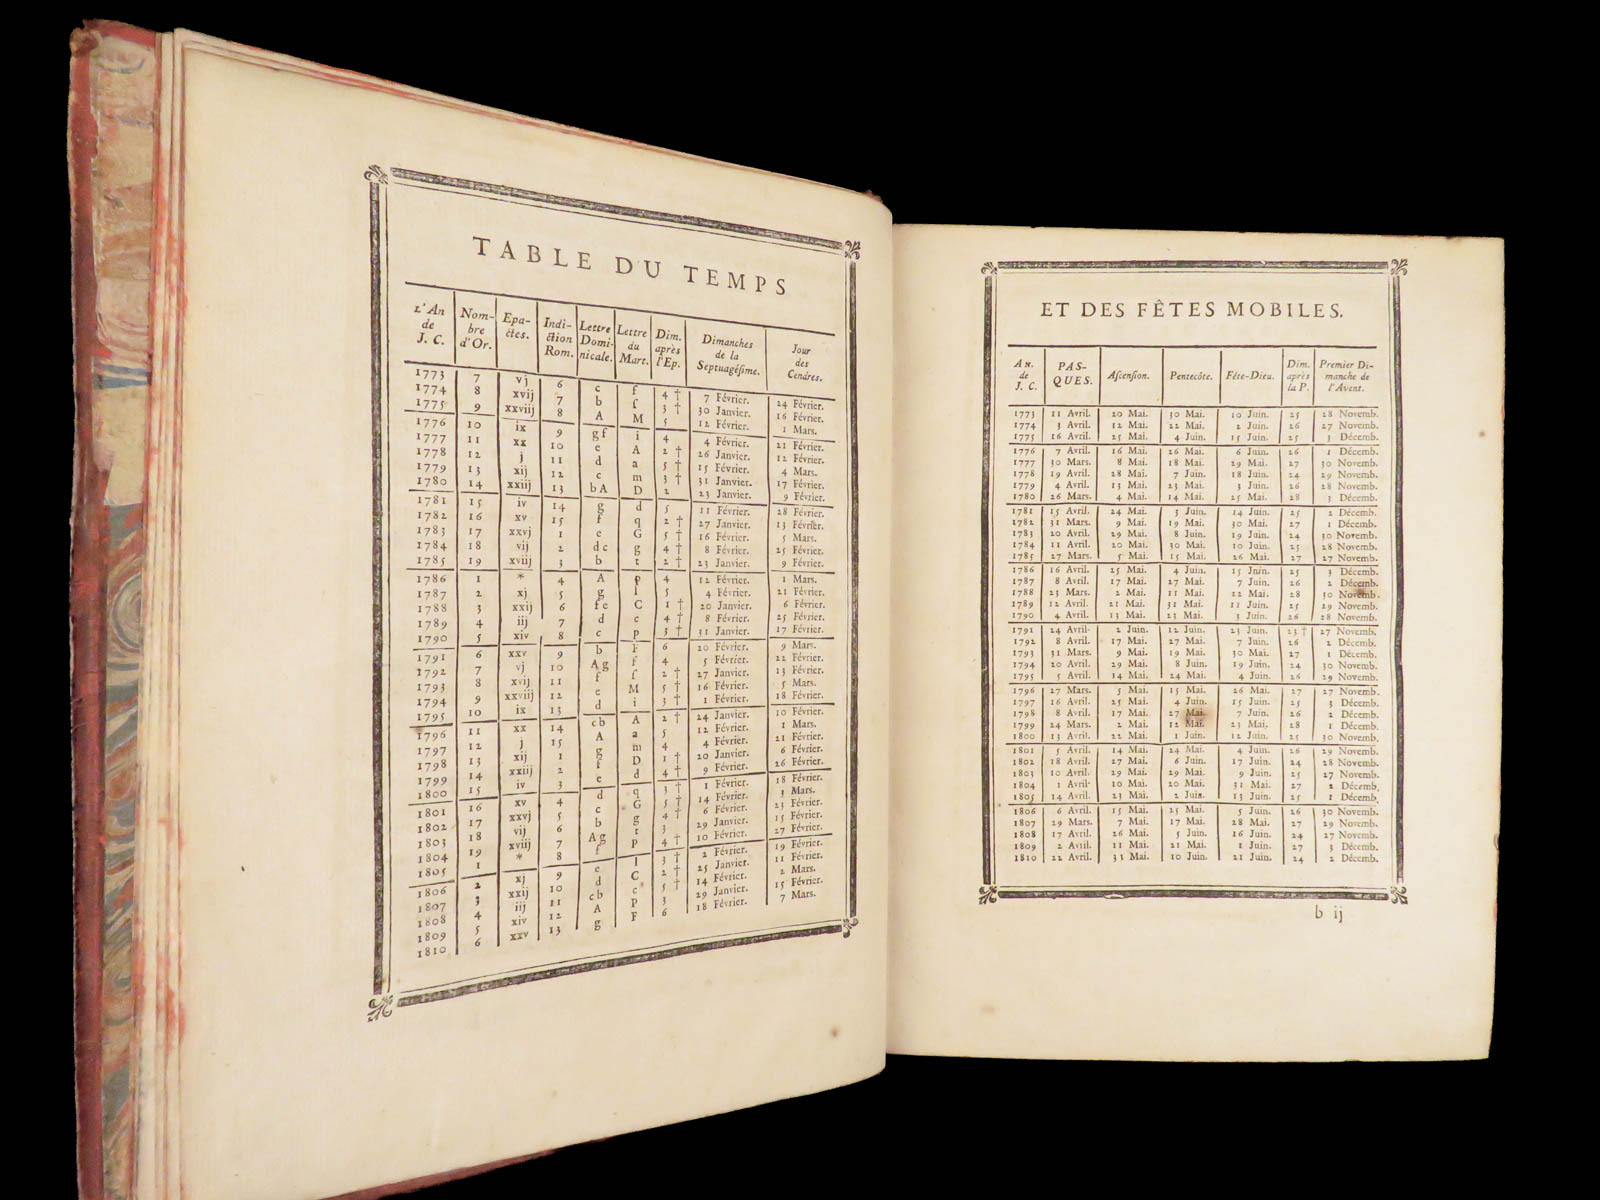 TABLE DU TEMPS
L'An de J. C. Nom-bre d'Or. Epa-ctes. Indi-ction Rom. Lettre Domi-nicale. Lettre du Mart. Dim. après l'Ep. Dimanches de la Septuagésime. Jour des Cendres.
1773 7 vj 6 c f 4 † 7 Février. 24 Février.
1774 8 xvij 7 b f 3 † 30 Janvier. 16 Février.
1775 9 xxviij 8 A M 5 12 Février. 1 Mars.
1776 10 ix 9 gf i 4 4 Février. 21 Février.
1777 11 xx 10 e A 2 † 26 Janvier. 12 Février.
1778 12 j 11 d a 5 † 15 Février. 4 Mars.
1779 13 xij 12 c m 3 † 31 Janvier. 17 Février.
1780 14 xxiij 13 bA D 2 23 Janvier. 9 Février.
1781 15 iv 14 g d 5 11 Février. 28 Février.
1782 16 xv 15 f q 2 † 27 Janvier. 13 Février.
1783 17 xxvj 1 e G 5 † 16 Février. 5 Mars.
1784 18 vij 2 dc g 4 † 8 Février. 25 Février.
1785 19 xviij 3 b t 2 † 23 Janvier. 9 Février.
1786 1 * 4 A P 4 12 Février. 1 Mars.
1787 2 xj 5 g l 5 4 Février. 21 Février.
1788 3 xxij 6 fe C 1 † 20 Janvier. 6 Février.
1789 4 iij 7 d c 4 † 8 Février. 25 Février.
1790 5 xiv 8 c p 3 † 31 Janvier. 17 Février.
1791 6 xxv 9 b F 6 20 Février. 9 Mars.
1792 7 vj 10 Ag f 4 5 Février. 22 Février.
1793 8 xvij 11 f f 2 † 27 Janvier. 13 Février.
1794 9 xxviij 12 e M 5 † 16 Février. 5 Mars.
1795 10 ix 13 d i 3 † 1 Février. 18 Février.
1796 11 xx 14 cb A 2 † 24 Janvier. 10 Février.
1797 12 j 15 A a 5 12 Février. 1 Mars.
1798 13 xij 1 g m 4 4 Février. 21 Février.
1799 14 xxiij 2 f D 1 † 20 Janvier. 6 Février.
1800 15 iv 3 e d 4 † 9 Février. 26 Février.
1801 16 xv 4 d q 3 † 1 Février. 18 Février.
1802 17 xxvj 5 c G 5 † 14 Février. 3 Mars.
1803 18 vij 6 b g 4 † 6 Février. 23 Février.
1804 19 xviij 7 Ag t 3 29 Janvier. 15 Février.
1805 1 * 8 f P 4 † 10 Février. 27 Février.
1806 2 xj 9 e l 3 † 2 Février. 19 Février.
1807 3 xxij 10 d C 2 † 25 Janvier. 11 Février.
1808 4 iij 11 cb c 5 † 14 Février. 2 Mars.
1809 5 xiv 12 A p 3 29 Janvier. 15 Février.
1810 6 xxv 13 g F 6 18 Février. 7 Mars.
ET DES FÊTES MOBILES.
An. de J. C. PAS-QUES. Ascension. Pentecôte. Fête-Dieu. Dim. après la P. Premier Di-manche de l'Avent.
1773 11 Avril. 20 Mai. 30 Mai. 10 Juin. 25 28 Novemb.
1774 3 Avril. 12 Mai. 22 Mai. 2 Juin. 26 27 Novemb.
1775 16 Avril. 25 Mai. 4 Juin. 15 Juin. 25 3 Décemb.
1776 7 Avril. 16 Mai. 26 Mai. 6 Juin. 26 1 Décemb.
1777 30 Mars. 8 Mai. 18 Mai. 29 Mai. 27 30 Novemb.
1778 19 Avril. 28 Mai. 7 Juin. 18 Juin. 24 29 Novemb.
1779 4 Avril. 13 Mai. 23 Mai. 3 Juin. 26 28 Novemb.
1780 26 Mars. 4 Mai. 14 Mai. 25 Mai. 28 3 Décemb.
1781 15 Avril. 24 Mai. 3 Juin. 14 Juin. 25 2 Décemb.
1782 31 Mars. 9 Mai. 19 Mai. 30 Mai. 27 1 Décemb.
1783 20 Avril. 29 Mai. 8 Juin. 19 Juin. 24 30 Novemb.
1784 11 Avril. 20 Mai. 30 Mai. 10 Juin. 25 28 Novemb.
1785 27 Mars. 5 Mai. 15 Mai. 26 Mai. 27 27 Novemb.
1786 16 Avril. 25 Mai. 4 Juin. 15 Juin. 25 3 Décemb.
1787 8 Avril. 17 Mai. 27 Mai. 7 Juin. 26 2 Décemb.
1788 23 Mars. 2 Mai. 11 Mai. 22 Mai. 28 30 Novemb.
1789 12 Avril. 21 Mai. 31 Mai. 11 Juin. 25 29 Novemb.
1790 4 Avril. 13 Mai. 23 Mai. 3 Juin. 26 28 Novemb.
1791 24 Avril. 2 Juin. 12 Juin. 23 Juin. 23 † 27 Novemb.
1792 8 Avril. 17 Mai. 27 Mai. 7 Juin. 26 2 Décemb.
1793 31 Mars. 9 Mai. 19 Mai. 30 Mai. 27 1 Décemb.
1794 20 Avril. 29 Mai. 8 Juin. 19 Juin. 24 30 Novemb.
1795 5 Avril. 14 Mai. 24 Mai. 4 Juin. 26 29 Novemb.
1796 27 Mars. 5 Mai. 15 Mai. 26 Mai. 27 27 Novemb.
1797 16 Avril. 25 Mai. 4 Juin. 15 Juin. 25 3 Décemb.
1798 8 Avril. 17 Mai. 27 Mai. 7 Juin. 26 2 Décemb.
1799 24 Mars. 2 Mai. 12 Mai. 23 Mai. 28 1 Décemb.
1800 13 Avril. 22 Mai. 1 Juin. 12 Juin. 25 30 Novemb.
1801 5 Avril. 14 Mai. 24 Mai. 4 Juin. 26 29 Novemb.
1802 18 Avril. 27 Mai. 6 Juin. 17 Juin. 24 28 Novemb.
1803 10 Avril. 29 Mai. 29 Mai. 9 Juin. 25 27 Novemb.
1804 1 Avril. 10 Mai. 20 Mai. 31 Mai. 27 2 Décemb.
1805 14 Avril. 23 Mai. 2 Juin. 13 Juin. 25 1 Décemb.
1806 6 Avril. 15 Mai. 25 Mai. 5 Juin. 26 30 Novemb.
1807 29 Mars. 7 Mai. 17 Mai. 28 Mai. 27 29 Novemb.
1808 17 Avril. 26 Mai. 5 Juin. 16 Juin. 24 27 Novemb.
1809 2 Avril. 11 Mai. 21 Mai. 1 Juin. 27 3 Décemb.
1810 22 Avril. 31 Mai. 10 Juin. 21 Juin. 24 2 Décemb.
b ij